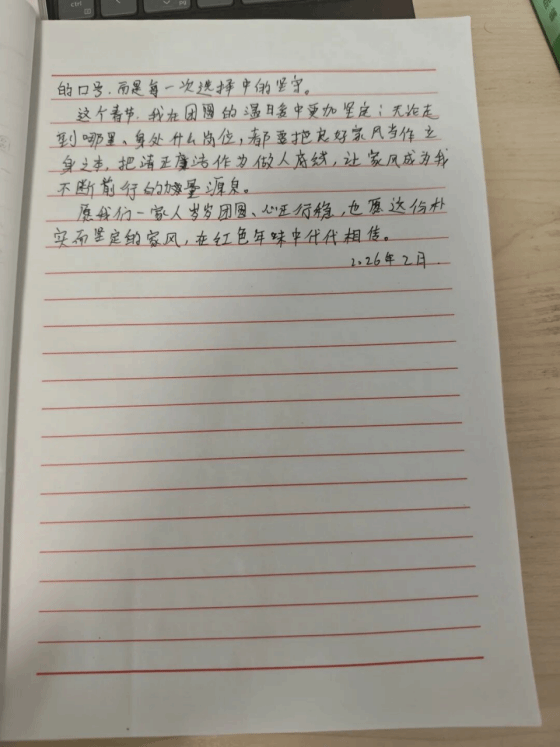 的口号，而是每一次选择中的坚守。
这个春节，我在团圆的温暖中更加坚定；无论走
到哪里、身处什么岗位，都要把良好家风当作立
身之本，把清正廉洁作为做人底线，让家风成为我
不断前行的力量源泉。
愿我们一家人岁岁团圆、心正行稳，也愿这份朴
实而坚定的家风，在红色年味中代代相传。
2026年2月.
ctrl